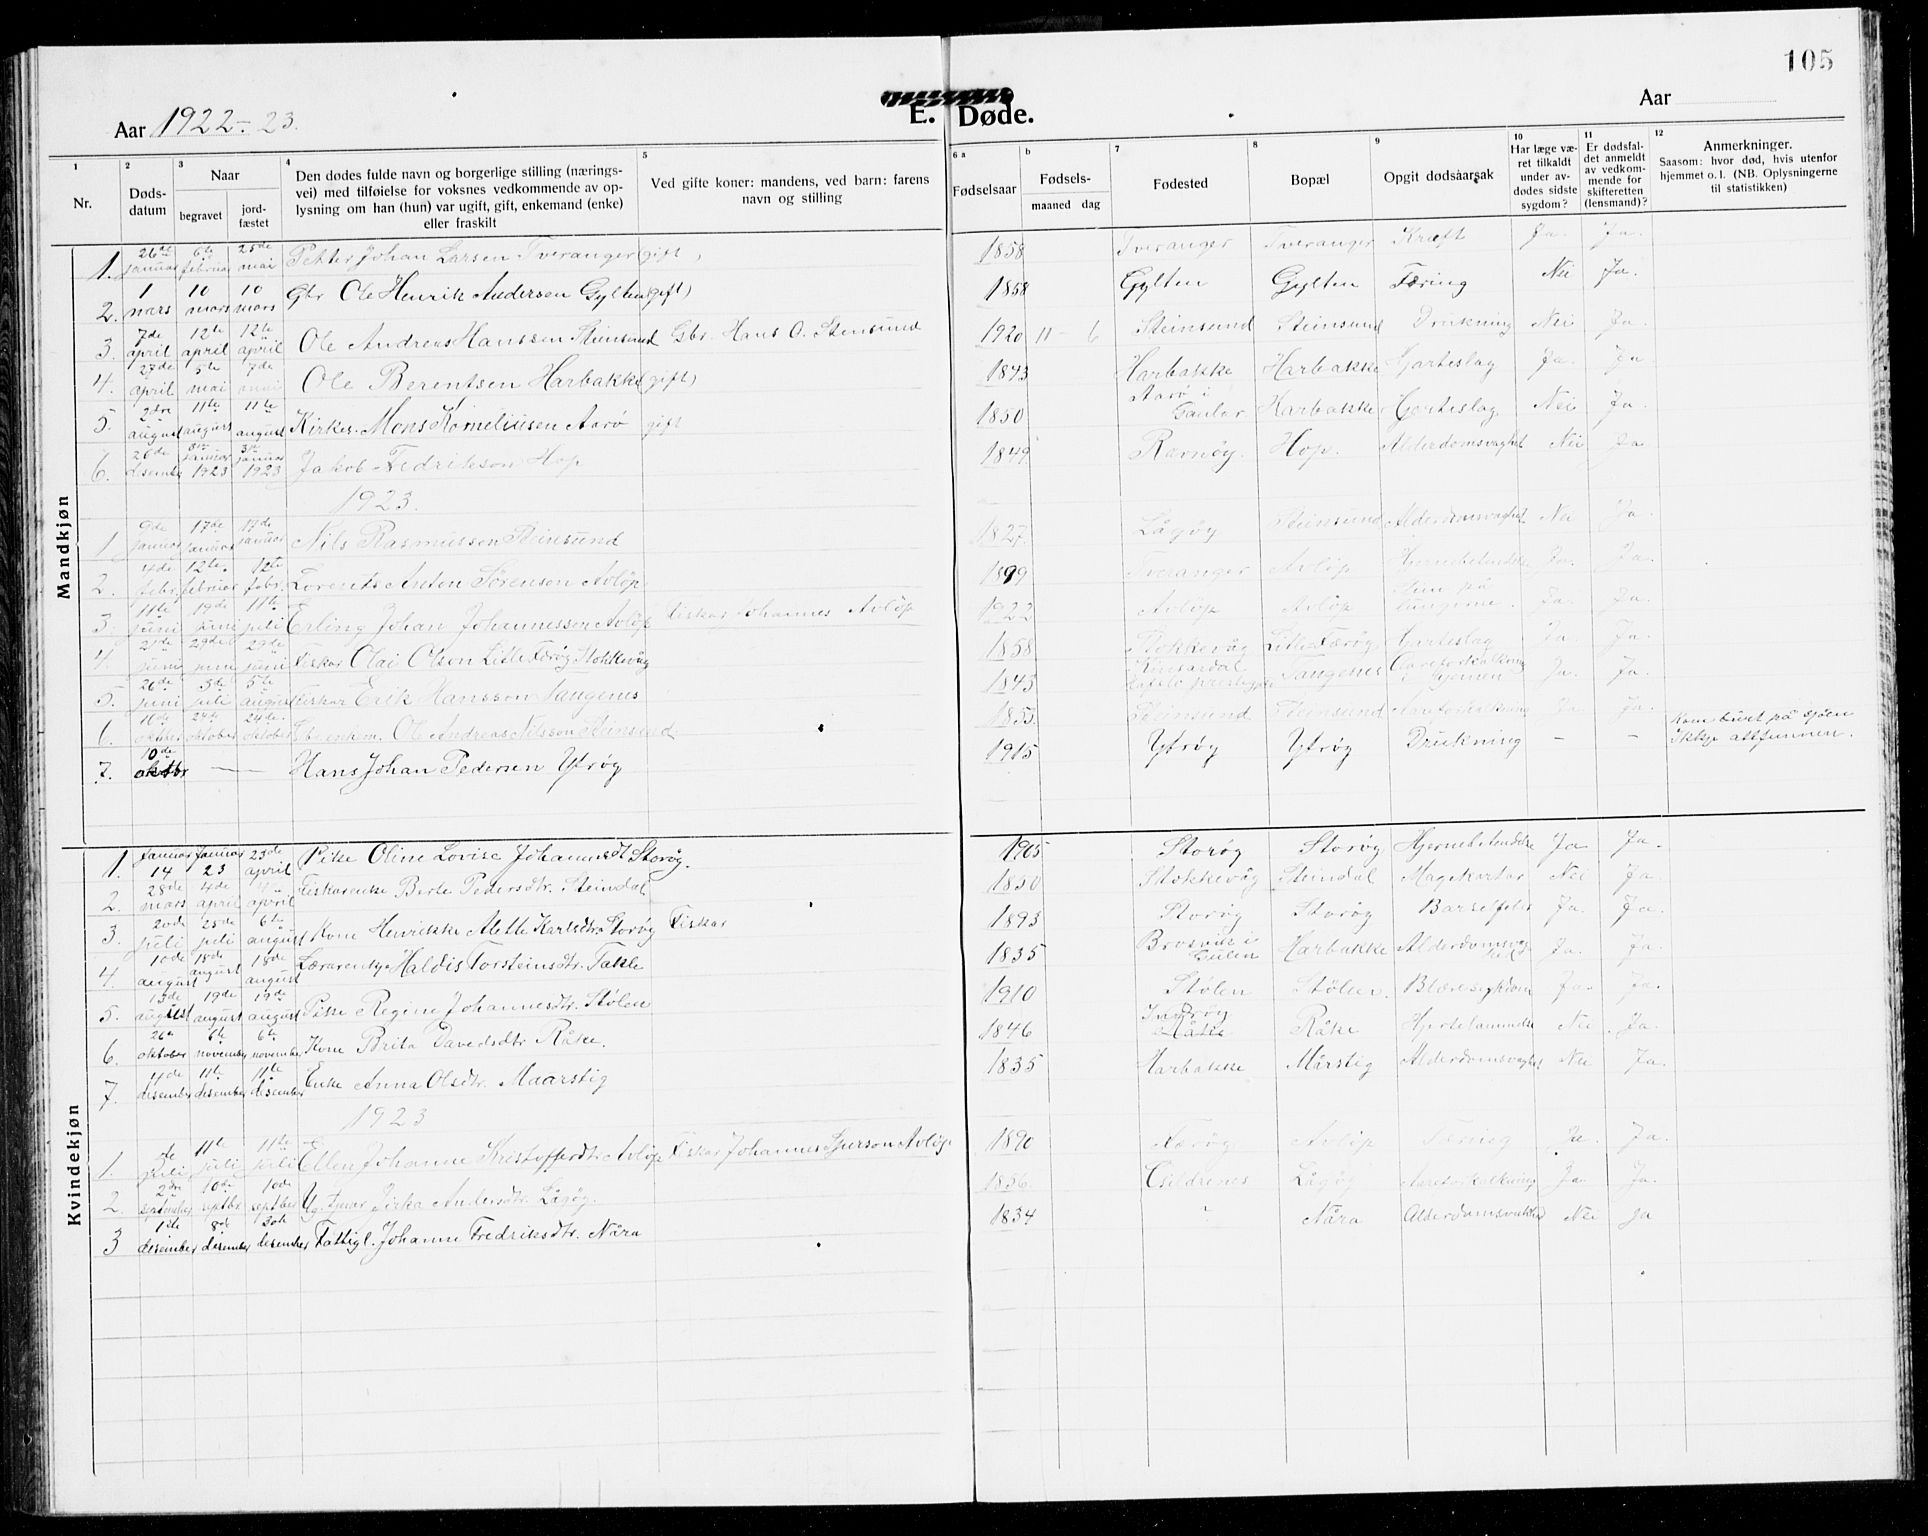 105
Aar 1922-23.
E. Døde.
Aar
1 Nr.
2 Døds-datum
3 Naar begravet jord-fæstet
4 Den dødes fulde navn og borgerlige stilling (nærings-vei) med tilføielse for voksnes vedkommende av op-lysning om han (hun) var ugift, gift, enkemand (enke) eller fraskilt
5 Ved gifte koner: mandens, ved barn: farens navn og stilling
6 a Fødselsaar
b Fødsels- maaned dag
7 Fødested
8 Bopæl
9 Opgit dødsaarsak
10 Har læge væ-ret tilkaldt under av-dødes sidste sygdom?
11 Er dødsfal-det anmeldt av vedkom-mende for skifteretten (lensmand)?
12 Anmerkninger. Saasom: hvor død, hvis utenfor hjemmet o. l. (NB. Oplysningerne til statistikken)
Mandkjøn
1. 26de januar 6te februar 25de mai Petter Johan Larsen Tveranger (gift) 1858 Tveranger Tveranger Kræft Ja. Ja.
2. 1 mars 10 mars 10 mars Gbr Ole Henrik Andersen Gylten (gift) 1858 Gylten Gylten Tæring Nei Ja.
3. 7de april 12te april 12te april Ole Andreas Hanssen Steinsund Gbr. Hans O. Stensund 1920 11 - 6 Steinsund Steinsund Drukning Nei Ja.
4. 27de april 5te mai 7de mai Ole Berentsen Harbakke (gift) 1843 Harbakke Harbakke Hjarteslag Ja. Ja
5. 2dre august 11te august 11te august Kirkes. Mons Korneliussen Aarø gift 1850 Aarø i Gaular Harbakke Hjarteslag Nei Ja.
6. 26de desember 3die januar 1923 3die januar 1923 Jakob Fredrikson Hop 1849 Ravnøy. Hop. Alderdomsvaghet Nei Ja
1923.
1 9de januar 17de januar 17de januar Nils Rasmussen Steinsund 1827. Lågøy Steinsund Alderdomsvaghet Nei Ja.
2. 4de febr. 12te februar 12te febr. Lorents Anton Sørenson Avløp 1899 Tveranger Avløp Hjernebetendelse Ja. Ja.
3. 11te juni 19de juni 11te juli Erling Johan Johannesson Avløp Fiskar Johannes Avløp 1922 Avløp Avløp lungerne. Ja. Ja.
4. 21de juni 29de juni 29de juni Fiskar Olai Olson Litle Færøy Stokkevåg 1858 Stokkevåg Litle Færøy Hjarteslag Ja. Ja.
5. 26de juni 3de juli 5te august Fiskar Erik Hansson Taugenes 1843 Taugenes Aareforkalkning i hjernen Ja. Ja.
6. 16de oktober 24de oktober 24de oktober Gbr enkem. Ole Andreas Nilsson Steinsund 1853. Steinsund Steinsund Aareforkalkning Ja. Ja.
7. 10de oktbr — — Hans Johan Pedersen Ytrøy 1915 Ytrøy Ytrøy Drukning — — Kom burt på sjøen Ikkje attfunnen.
Kvindekjøn
1. Januar 14 Januar 23 23de april Pike Oline Lovise Johannesdt Storøy. 1905 Storøy Storøy Hjernebetendelse Ja Ja.
2. 28de mars 4de april 4 april Fiskarenke Berte Pedersdtr. Steindal 1850 Stokkevåg Steindal Magekatar Nei Ja.
3. 20de juli 25de juli 6te august Kone Henrikke Alette Karlsdtr Storøy Fiskar 1893 Storøy Storøy Barselfeber Ja. Ja.
4. 10de august 18de august 18de august Lærarenkja Haldis Torsteinsdtr. Takle 1835 Brosvik i Gulen Harbakke Alderdomsvaghet Ja. Ja.
5. 13de august 19de august 19de august Pike Regine Johannesdtr. Stølen 1910 Stølen Stølen. Blæresygdom Ja. Ja.
6. 26de oktober 6te november 6te november Kone Brita Davedsdtr Råke. 1846 Indrøy Råke Råke Hjertelammelse Nei Ja.
7. 4de desember 11te desember 11te desember Enke Anna Olsdtr. Maarstig 1835 Harbakke Mårstig Alderdomsvaghet Nei Ja.
1923
1. juli 11te juli 11te juli Ellen Johanne Kristoffersdtr Avløp Fiskar Johannes Sjurson Avløp 1890 Færøy Avløp Tæring Ja. Ja.
2. 2dre september 10de septbr 10de septber Ug. Andersdtr. Lågøy. 1856. Lågøy Aareforkalkning Ja. Ja.
3 1ste desember 8de desember 30te desember Fattigl. Johanne Fredriksdtr. Nåra 1834 ? Nåra Alderdomsvakhet Nei ja